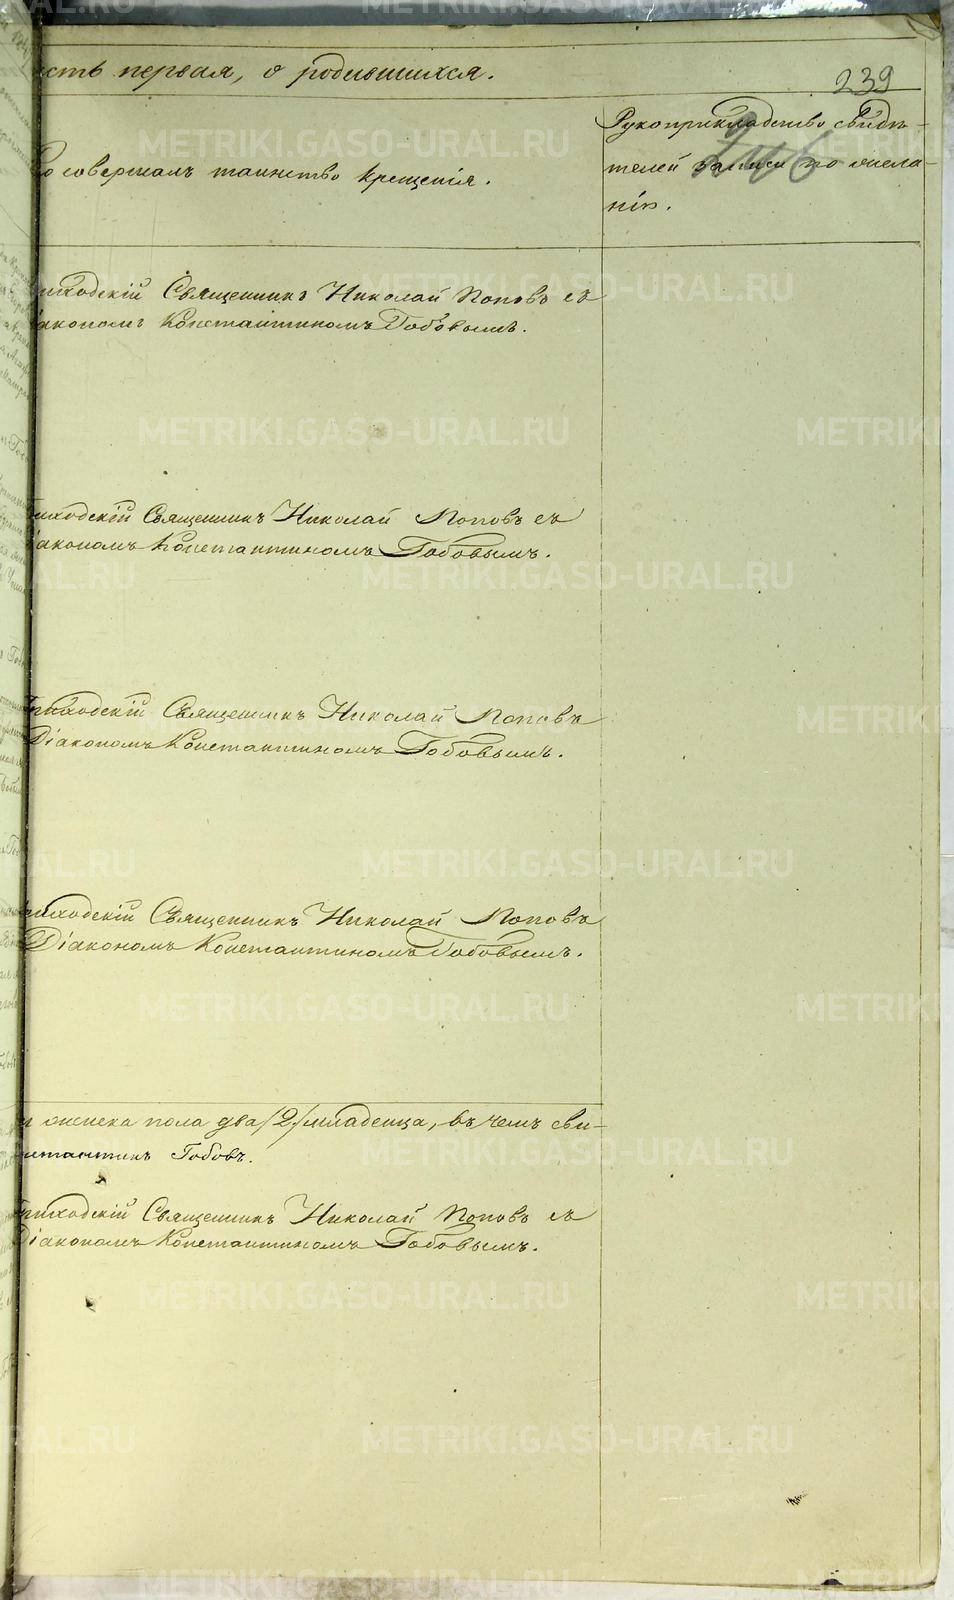 сть первая, о родившихся.
239
то совершалъ таинство крещенія.
Рукоприкладство свидѣ-
телей записи по жела-
нію.
риходскій Священникъ Николай Поповъ съ
іакономъ Константиномъ Гобовымъ.
риходскій Священникъ Николай Поповъ съ
іакономъ Константиномъ Гобовымъ.
Приходскій Священникъ Николай Поповъ
Діакономъ Константиномъ Гобовымъ.
риходскій Священникъ Николай Поповъ
Діакономъ Константиномъ Гобовымъ.
женска пола два /2/ младенца, въ чемъ сви-
нстантинъ Гобовъ.
Приходскій Священникъ Николай Поповъ съ
Діакономъ Константиномъ Гобовымъ.
METRIKI.GASO-URAL.RU